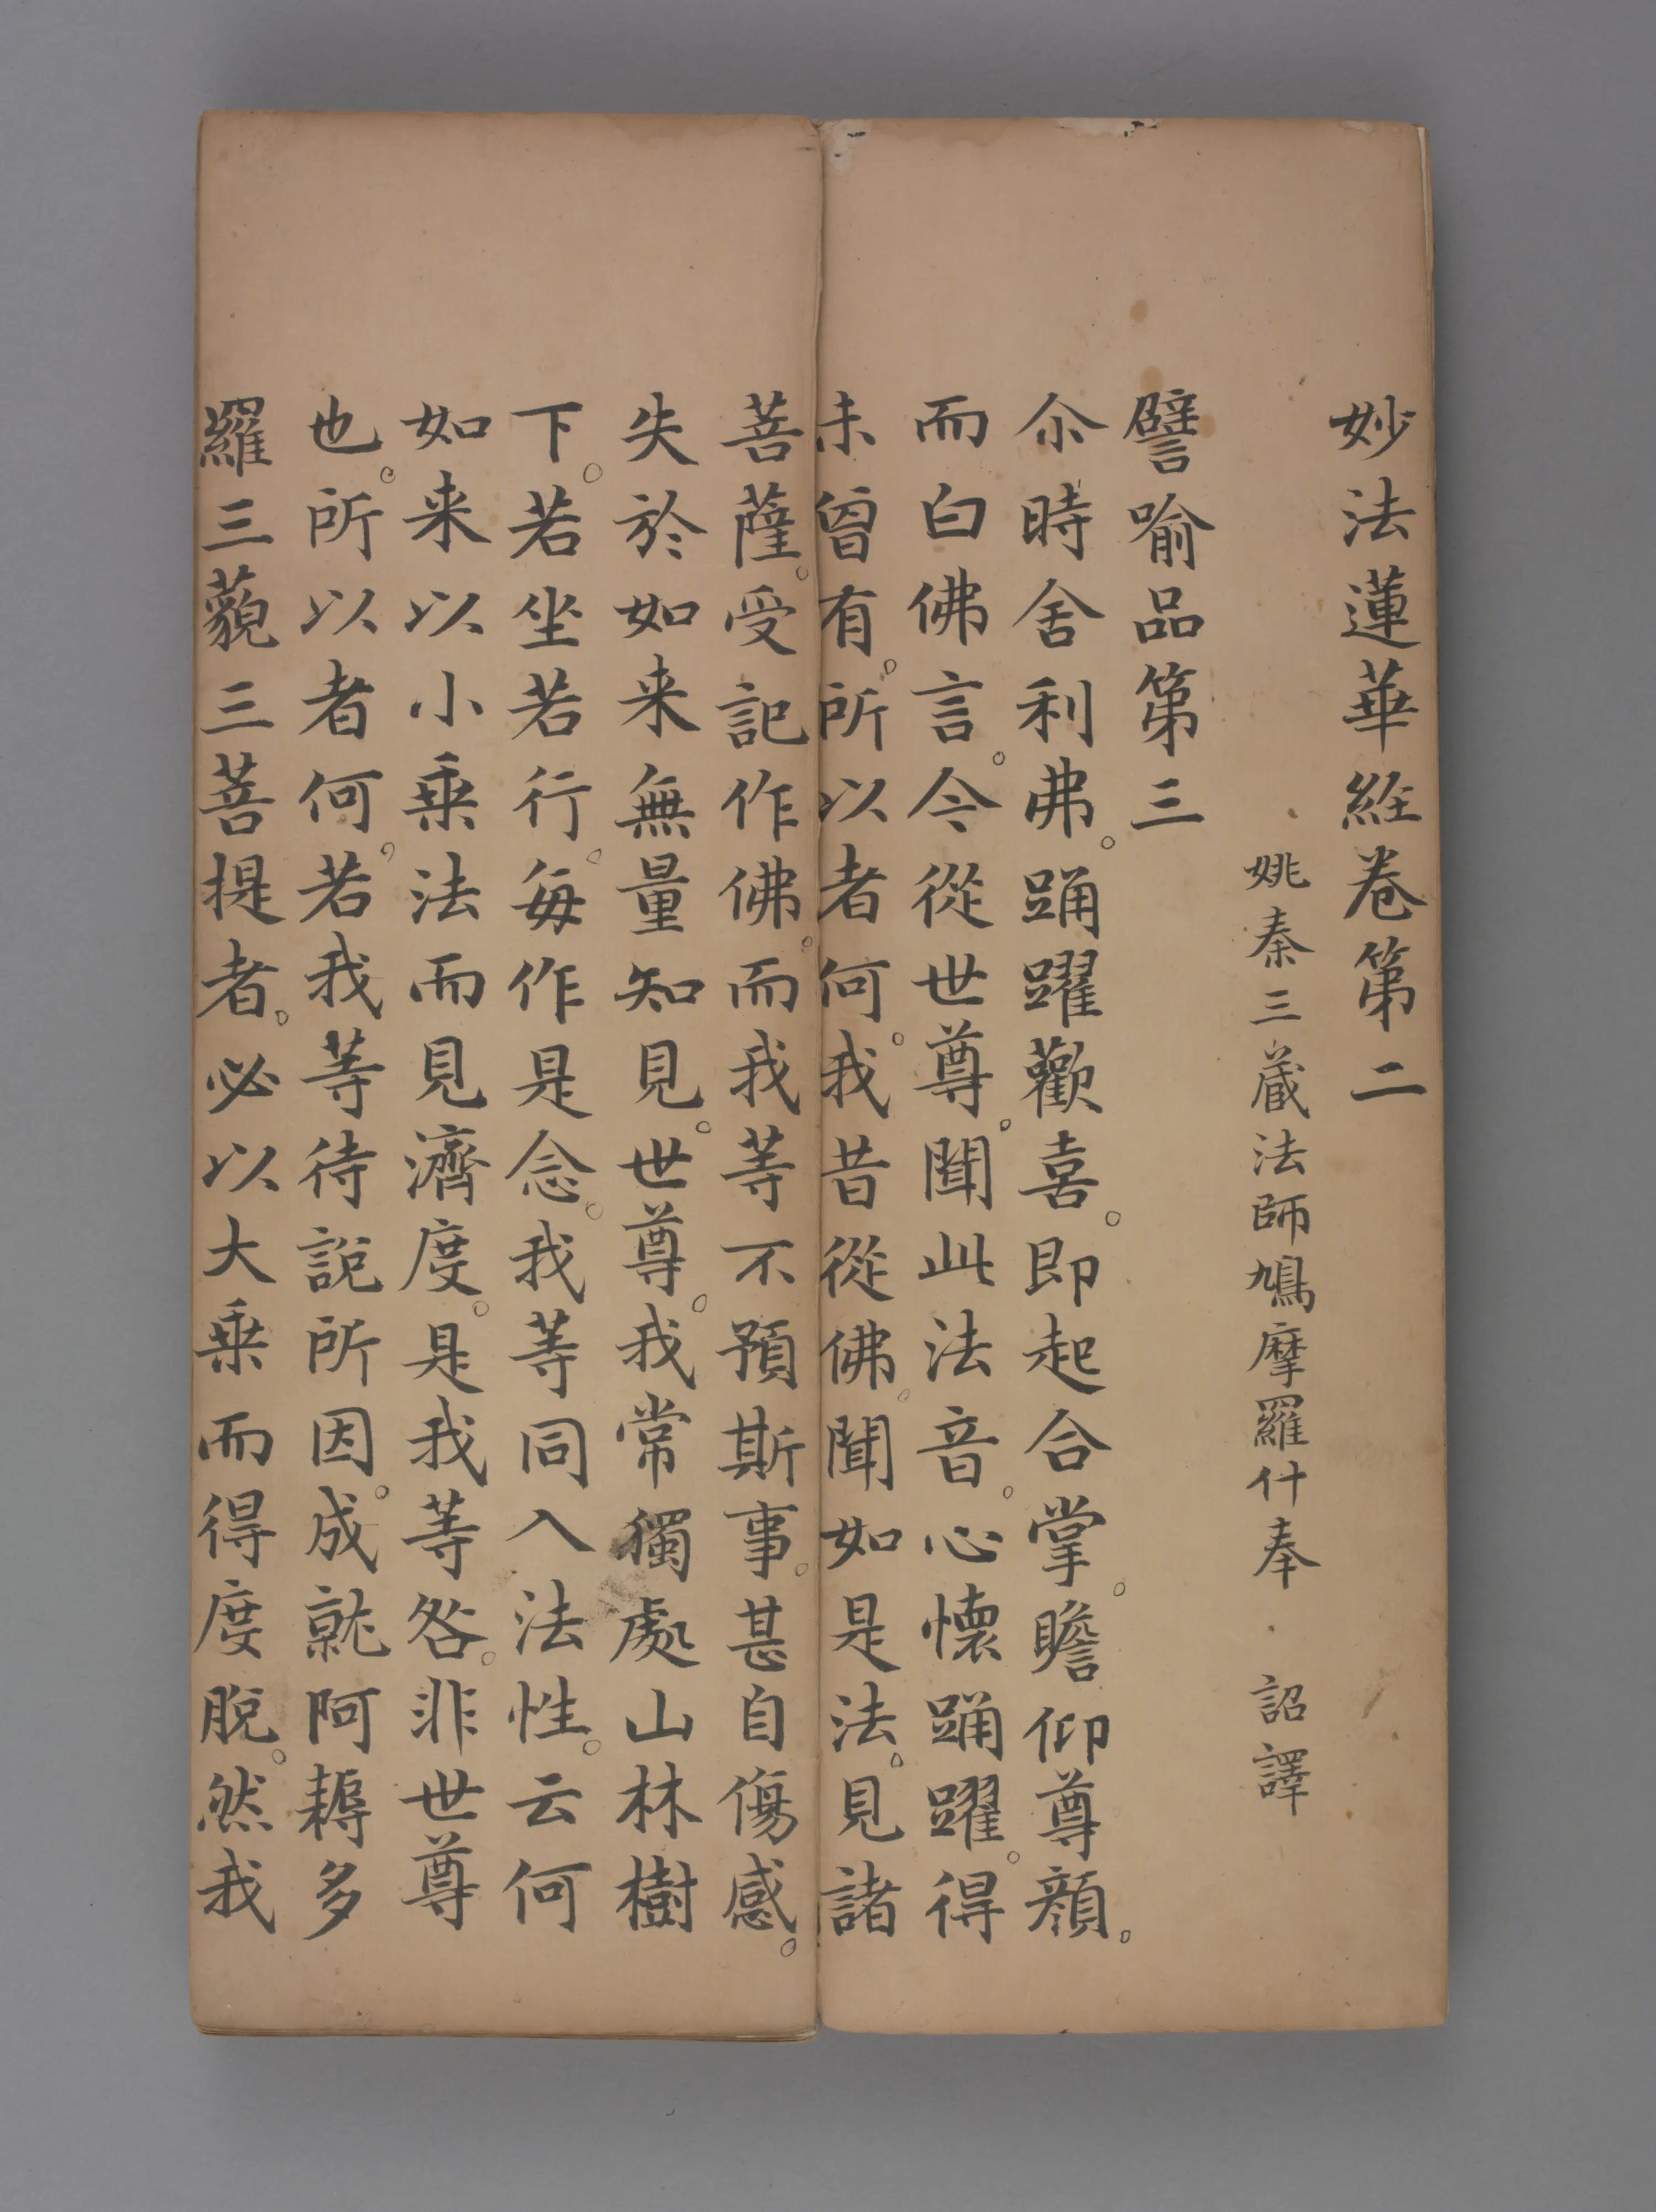 妙法蓮華經卷第二
姚秦三蔵法師鳩摩羅什奉 詔譯
譬喻品第三
尒時舍利弗。踊躍歡喜。即起合掌。瞻仰尊顏。
而白佛言。今從世尊。聞此法音。心懷踊躍。得
未曾有。所以者何。我昔從佛。聞如是法。見諸
菩薩。受記作佛。而我等不預斯事。甚自傷感。
失於如来無量知見。世尊。我常獨處山林樹
下。若坐若行。每作是念。我等同入法性。云何
如来以小乗法而見濟度。是我等咎。非世尊
也。所以者何。若我等待說所因。成就阿耨多
羅三藐三菩提者。必以大乗而得度脫。然我